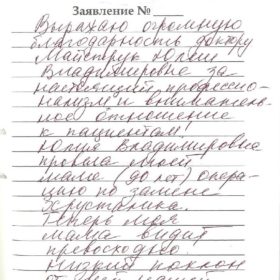 Заявление №
Выражаю огромную
благодарность доктору
Майструк Юлии
Владимировне за
настоящий профессио-
нализм и вниматель-
ное отношение
к пациентам!
Юлия Владимировна
провела моей
маме (80 лет) опера-
цию по замене
хрусталика.
Теперь моя
мама видит
превосходно
Низкий поклон
от всей нашей